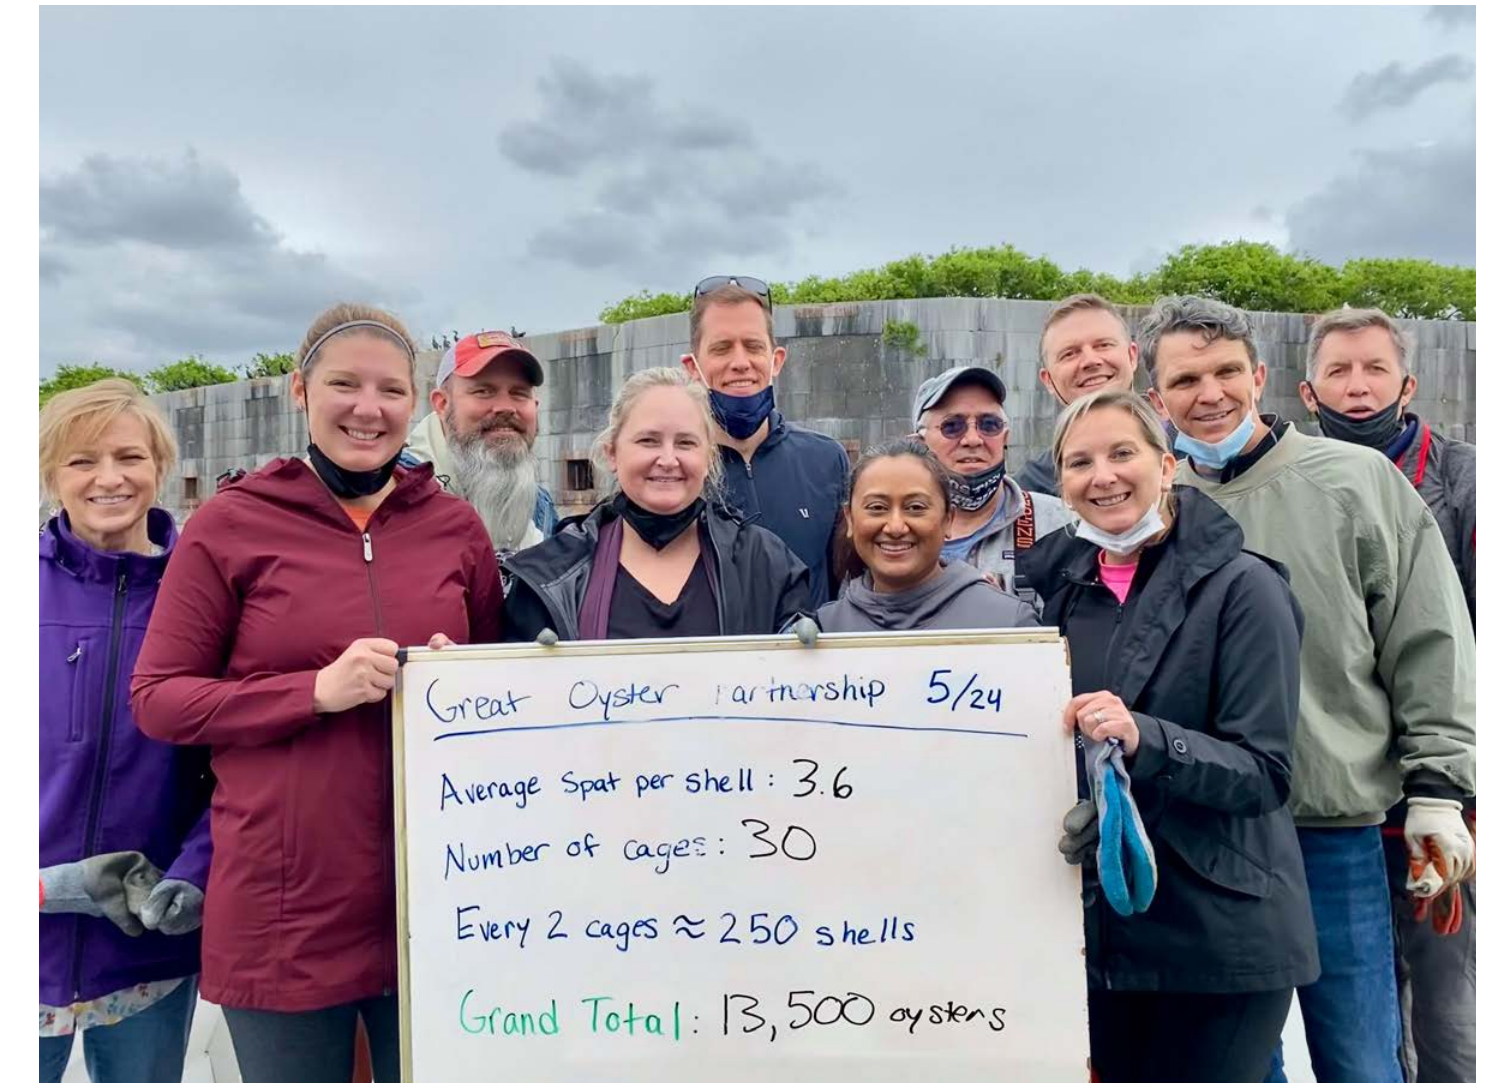 Great Oyster Partnership 5/24
Average Spat per shell: 3.6
Number of cages: 30
Every 2 cages ≈ 250 shells
Grand Total: 13,500 oysters